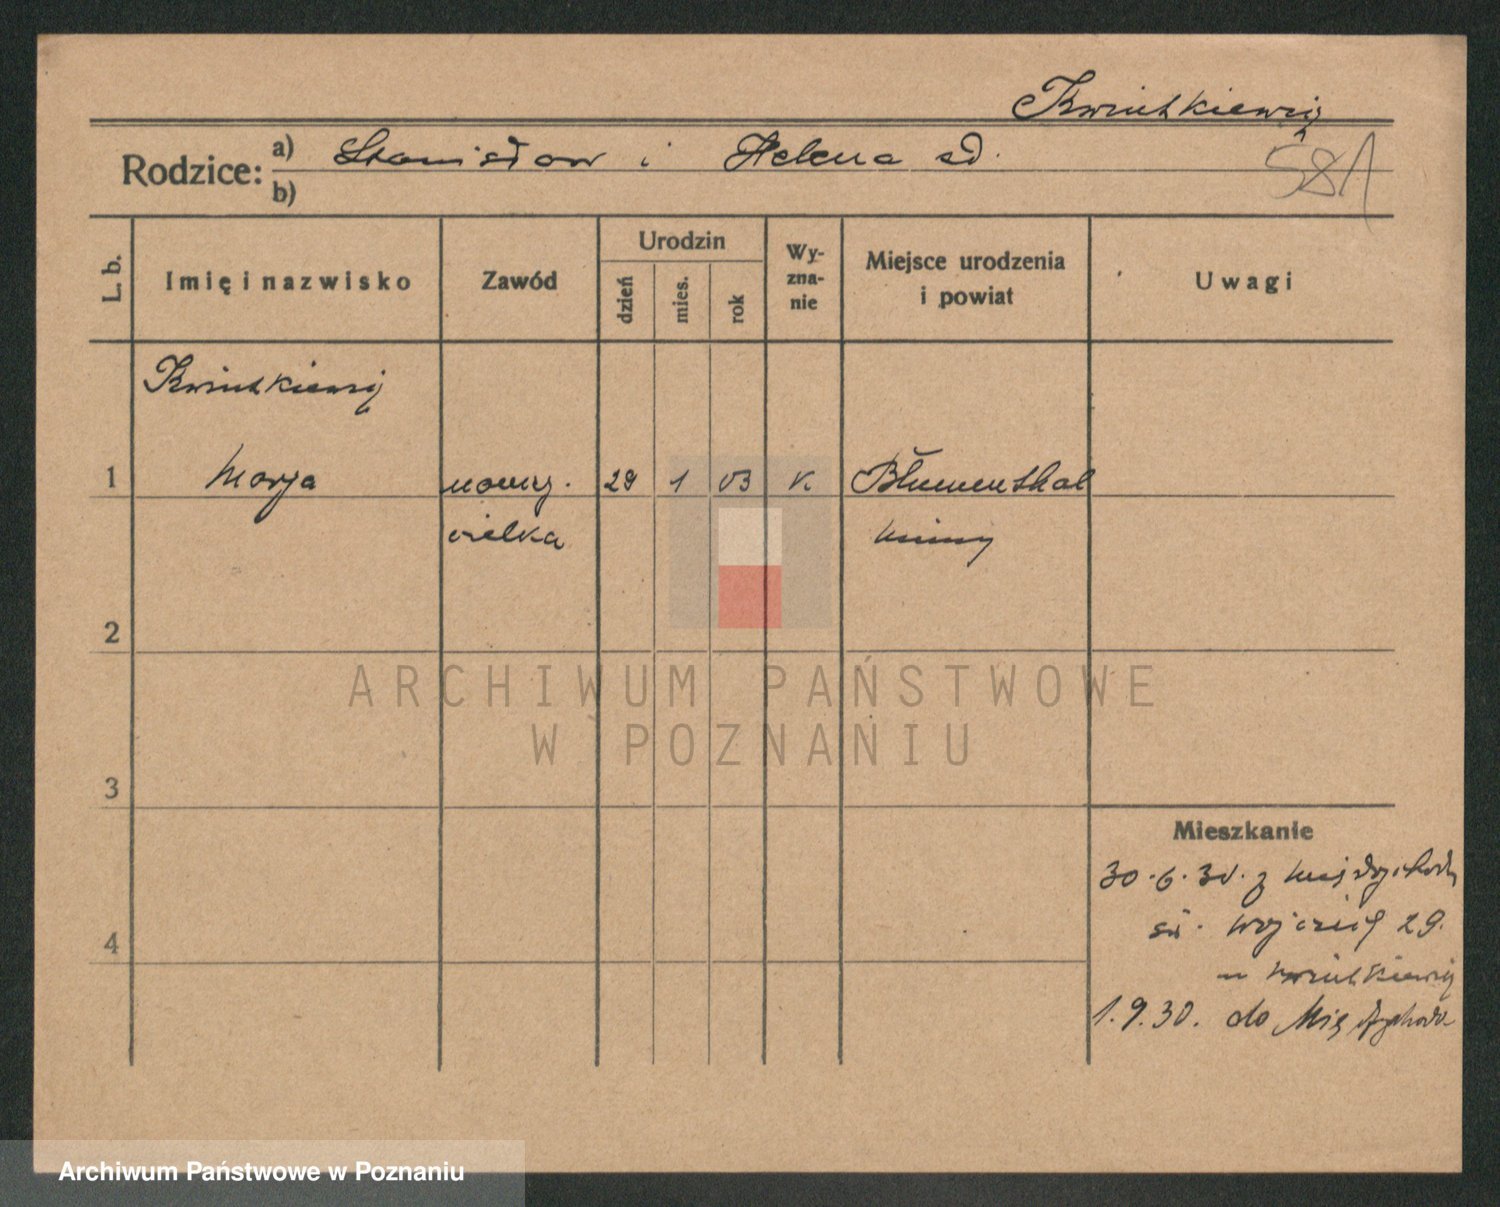 Kwiatkiewicz
Rodzice: a) Stanisław i Helena sd.
b)
581
L. b. Imię i nazwisko Zawód Urodzin dzień mies. rok Wy-zna-nie Miejsce urodzenia i powiat Uwagi
Kwiatkiewicz
1 Marja nauczy- 29 1 03 k. Blumenthal
cielka Niemcy
2
ARCHIWUM PAŃSTWOWE
W POZNANIU
3
Mieszkanie
30.6.30. z Międzychodu
św. Wojciech 29.
4
u Kwiatkiewicz
1.9.30. do Międzychodu
Archiwum Państwowe w Poznaniu